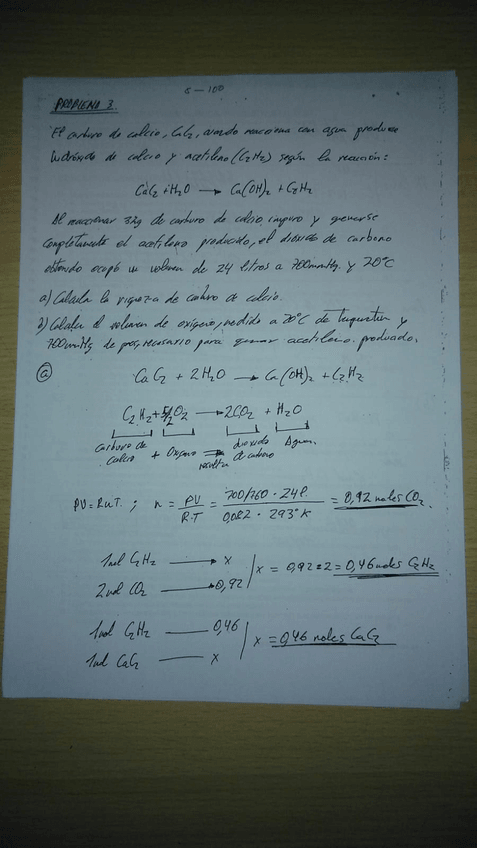 6 - 100
PROBLEMA 3
El carburo de calcio, CaC2, cuando reacciona con agua produce
hidróxido de calcio y acetileno (C2H2) según la reacción:
CaC2 + H2O → Ca(OH)2 + C2H2
Al reaccionar 3kg de carburo de calcio impuro y quemarse
completamente el acetileno producido, el dióxido de carbono
obtenido ocupó un volumen de 24 litros a 700mmHg y 20°C
a) Calcula la riqueza de carburo de calcio.
b) Calcula el volumen de oxígeno, medido a 20°C de temperatura y
760mmHg de pres, necesario para quemar acetileno producido.
a) CaC2 + 2H2O → Ca(OH)2 + C2H2
C2H2 + 5/2 O2 → 2CO2 + H2O
carburo de calcio + Oxígeno resulta dióxido de carbono Agua.
PV = R.n.T. ; n = PV / R.T = 700/760 · 24l. / 0,082 · 293°K = 0,92 moles CO2.
1mol C2H2 → x
2mol CO2 → 0,92 / x = 0,92 : 2 = 0,46 moles C2H2
1mol C2H2 — 0,46
1mol CaC2 — x / x = 0,46 moles CaC2